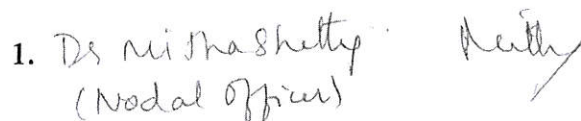 1. Dr Nisha Shetty
(Nodal Officer)